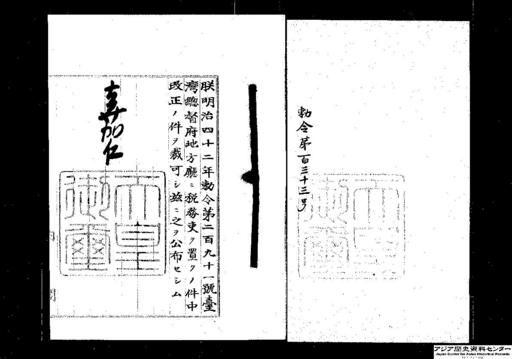 勅令第百三十三号
朕明治四十二年勅令第二百九十一號臺
灣總督府地方廳ニ税務吏ヲ置クノ件中
改正ノ件ヲ裁可シ茲ニ之ヲ公布セシム
嘉仁
天皇
御璽
アジア歴史資料センター
Japan Center for Asian Historical Records